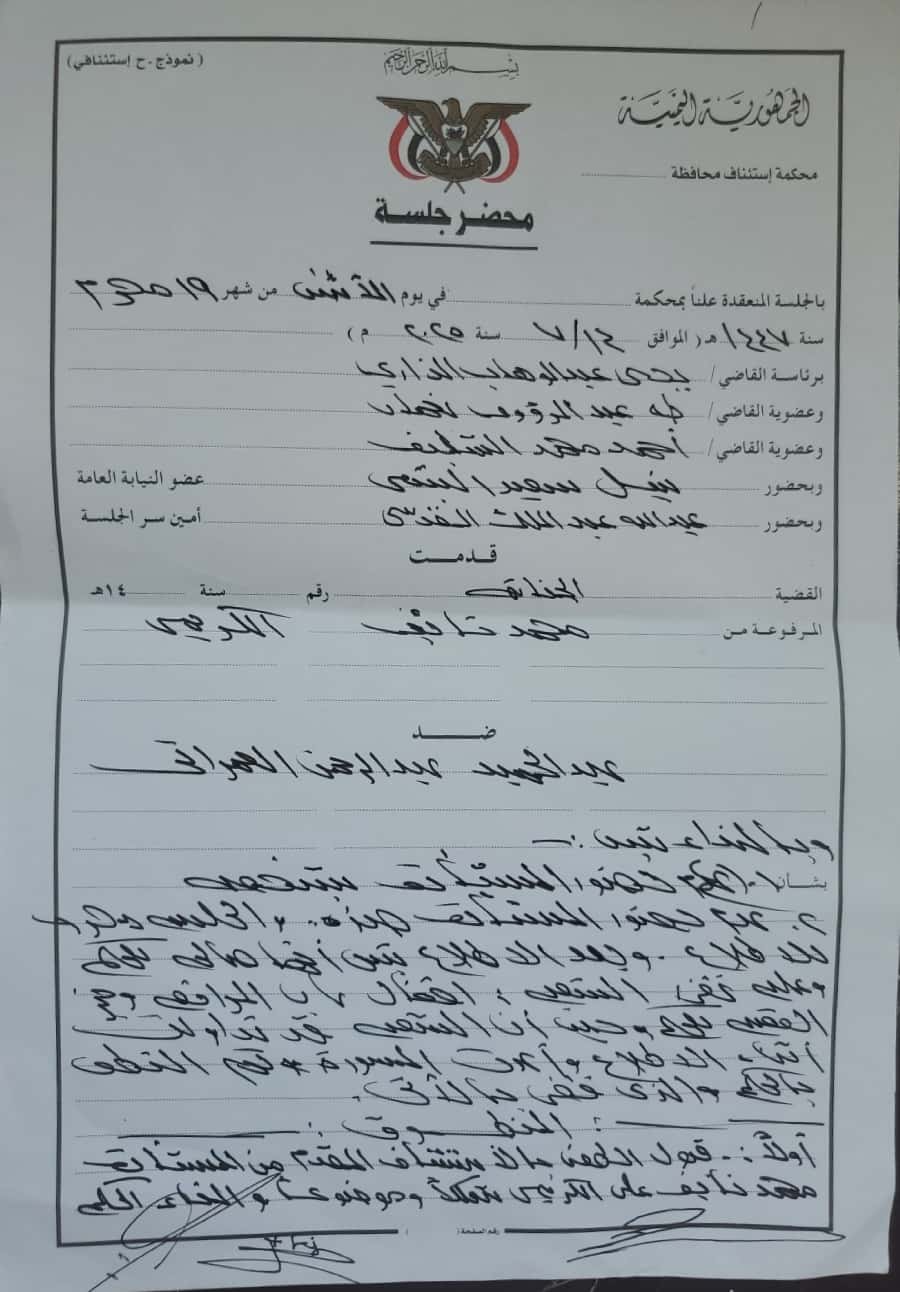 (نموذج.ح إستئنافي)
بسم الله الرحمن الرحيم
الجمهورية اليمنية
محكمة إستئناف محافظة
محضر جلسة
بالجلسة المنعقدة علناً بمحكمة في يوم الاثنين من شهر ١٩ محرم
سنة ١٤٤٧ هـ ( الموافق ٧/١٤ سنة ٢٠٢٥ م )
برئاسة القاضي/ يحيى عبدالوهاب الذاري
وعضوية القاضي/ طه عبدالرؤوف نعمان
وعضوية القاضي/ أحمد محمد
وبحضور نبيل سعيد عضو النيابة العامة
وبحضور عبدالله عبدالملك القدسي أمين سر الجلسة
قدمت
القضية رقم سنة ١٤هـ
المرفوعة من محمد نايف الكريمي
ضد
عبدالحميد عبدالرحمن العمراني
وبالنداء تبين :-
بشأن ١- حضور المستأنف بشخصه
٢- عدم حضور المستأنف ضده. والجلسة
للاطلاع . وبعد الاطلاع تبين أنها صالحة للحكم
وعليه الشعبة : باب المرافعة وحجز
القضية للحكم وحيث أن الشعبة قد تداولت
أثناء الاطلاع المسودة وتم النطق
بالحكم والذي قضى بالآتي .
: المنطوق :
أولاً :- قبول الطعن بالاستئناف المقدم من المستأنف
محمد نايف علي الكريمي شكلاً وموضوعاً والغاء الحكم
رقم الصفحة ( )